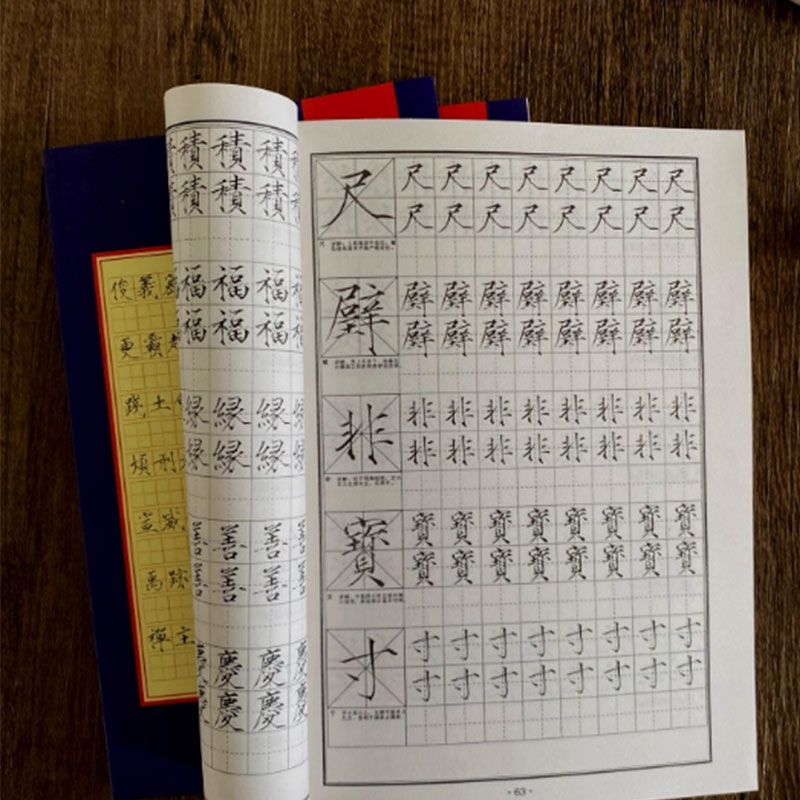 積 積 積
積 積 積
福 福 福 福
福 福 福 福
緣 緣 緣 緣
緣 緣 緣 緣
善 善 善 善
善 善 善 善
慶 慶 慶 慶
慶 慶 慶 慶
尺 尺 尺 尺 尺 尺 尺 尺 尺
尺 尺 尺 尺 尺 尺 尺 尺
璧 璧 璧 璧 璧 璧 璧 璧 璧
璧 璧 璧 璧 璧 璧 璧 璧
非 非 非 非 非 非 非 非 非
非 非 非 非 非 非 非 非
寶 寶 寶 寶 寶 寶 寶 寶 寶
寶 寶 寶 寶 寶 寶 寶 寶
寸 寸 寸 寸 寸 寸 寸 寸 寸
寸 寸 寸 寸 寸 寸 寸 寸
· 63 ·
俊 義
更 霸
踐 土
煩 刑
宣 威
禹 跡
禪 主